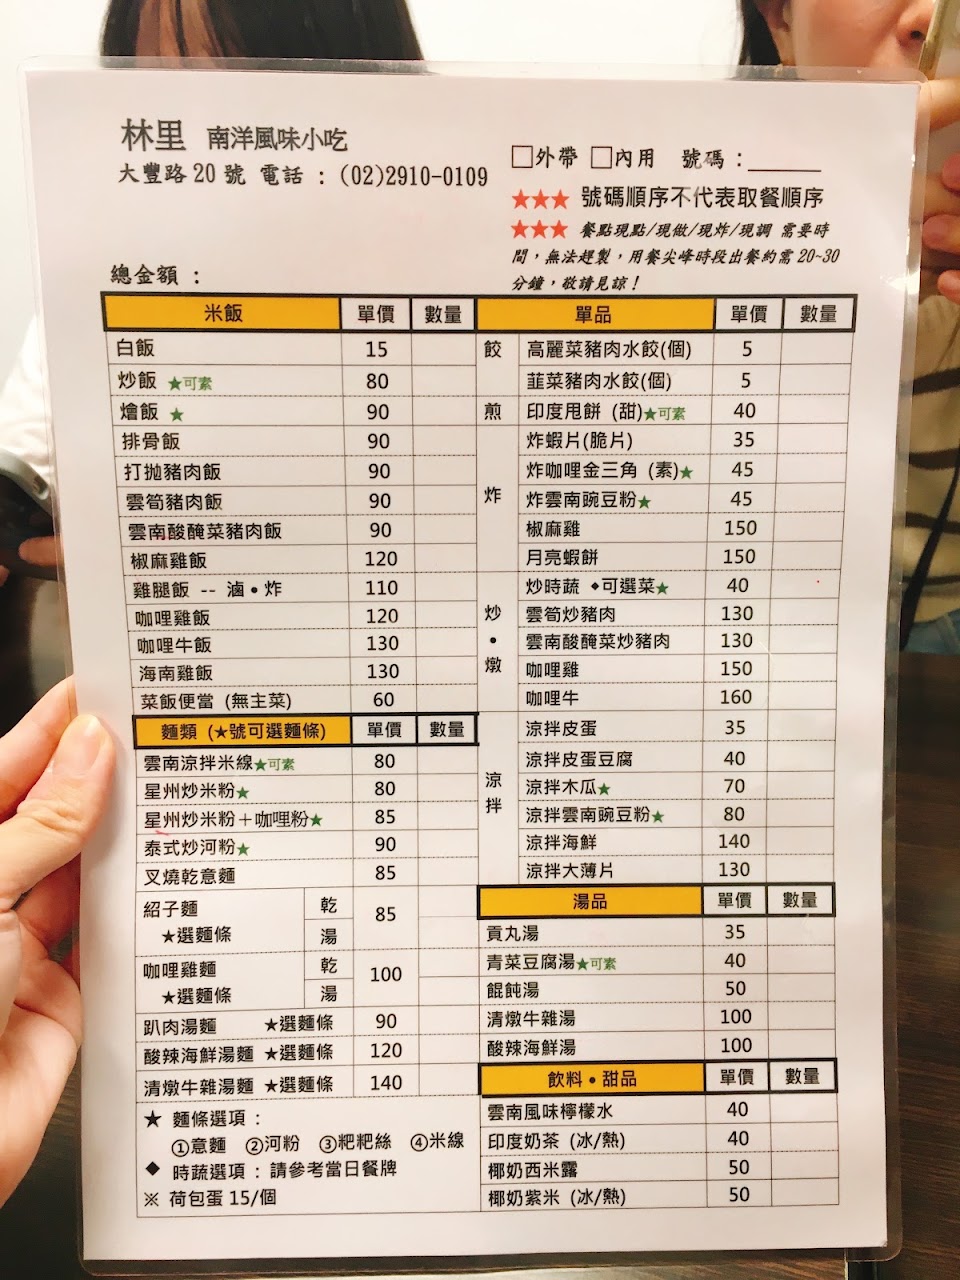 林里 南洋風味小吃
大豐路 20 號 電話 : (02)2910-0109
總金額 :
□外帶 □內用 號碼 : ______
★★★ 號碼順序不代表取餐順序
★★★ 餐點現點/現做/現炸/現調 需要時
間，無法趕製，用餐尖峰時段出餐約需 20~30
分鐘，敬請見諒！
米飯 單價 數量
白飯 15
炒飯 ★可素 80
燴飯 ★ 90
排骨飯 90
打拋豬肉飯 90
雲筍豬肉飯 90
雲南酸醃菜豬肉飯 90
椒麻雞飯 120
雞腿飯 -- 滷•炸 110
咖哩雞飯 120
咖哩牛飯 130
海南雞飯 130
菜飯便當 (無主菜) 60
麵類 (★號可選麵條) 單價 數量
雲南涼拌米線★可素 80
星州炒米粉★ 80
星州炒米粉＋咖哩粉★ 85
泰式炒河粉★ 90
叉燒乾意麵 85
紹子麵 乾 85
★選麵條 湯
咖哩雞麵 乾 100
★選麵條 湯
趴肉湯麵 ★選麵條 90
酸辣海鮮湯麵 ★選麵條 120
清燉牛雜湯麵 ★選麵條 140
★ 麵條選項 :
①意麵 ②河粉 ③粑粑絲 ④米線
◆ 時蔬選項 : 請參考當日餐牌
※ 荷包蛋 15/個
單品 單價 數量
餃 高麗菜豬肉水餃(個) 5
韮菜豬肉水餃(個) 5
煎 印度甩餅 (甜)★可素 40
炸 炸蝦片(脆片) 35
炸咖哩金三角 (素)★ 45
炸雲南豌豆粉★ 45
椒麻雞 150
月亮蝦餅 150
炒•燉 炒時蔬 ◆可選菜★ 40
雲筍炒豬肉 130
雲南酸醃菜炒豬肉 130
咖哩雞 150
咖哩牛 160
涼拌 涼拌皮蛋 35
涼拌皮蛋豆腐 40
涼拌木瓜★ 70
涼拌雲南豌豆粉★ 80
涼拌海鮮 140
涼拌大薄片 130
湯品 單價 數量
貢丸湯 35
青菜豆腐湯★可素 40
餛飩湯 50
清燉牛雜湯 100
酸辣海鮮湯 100
飲料•甜品 單價 數量
雲南風味檸檬水 40
印度奶茶 (冰/熱) 40
椰奶西米露 50
椰奶紫米 (冰/熱) 50